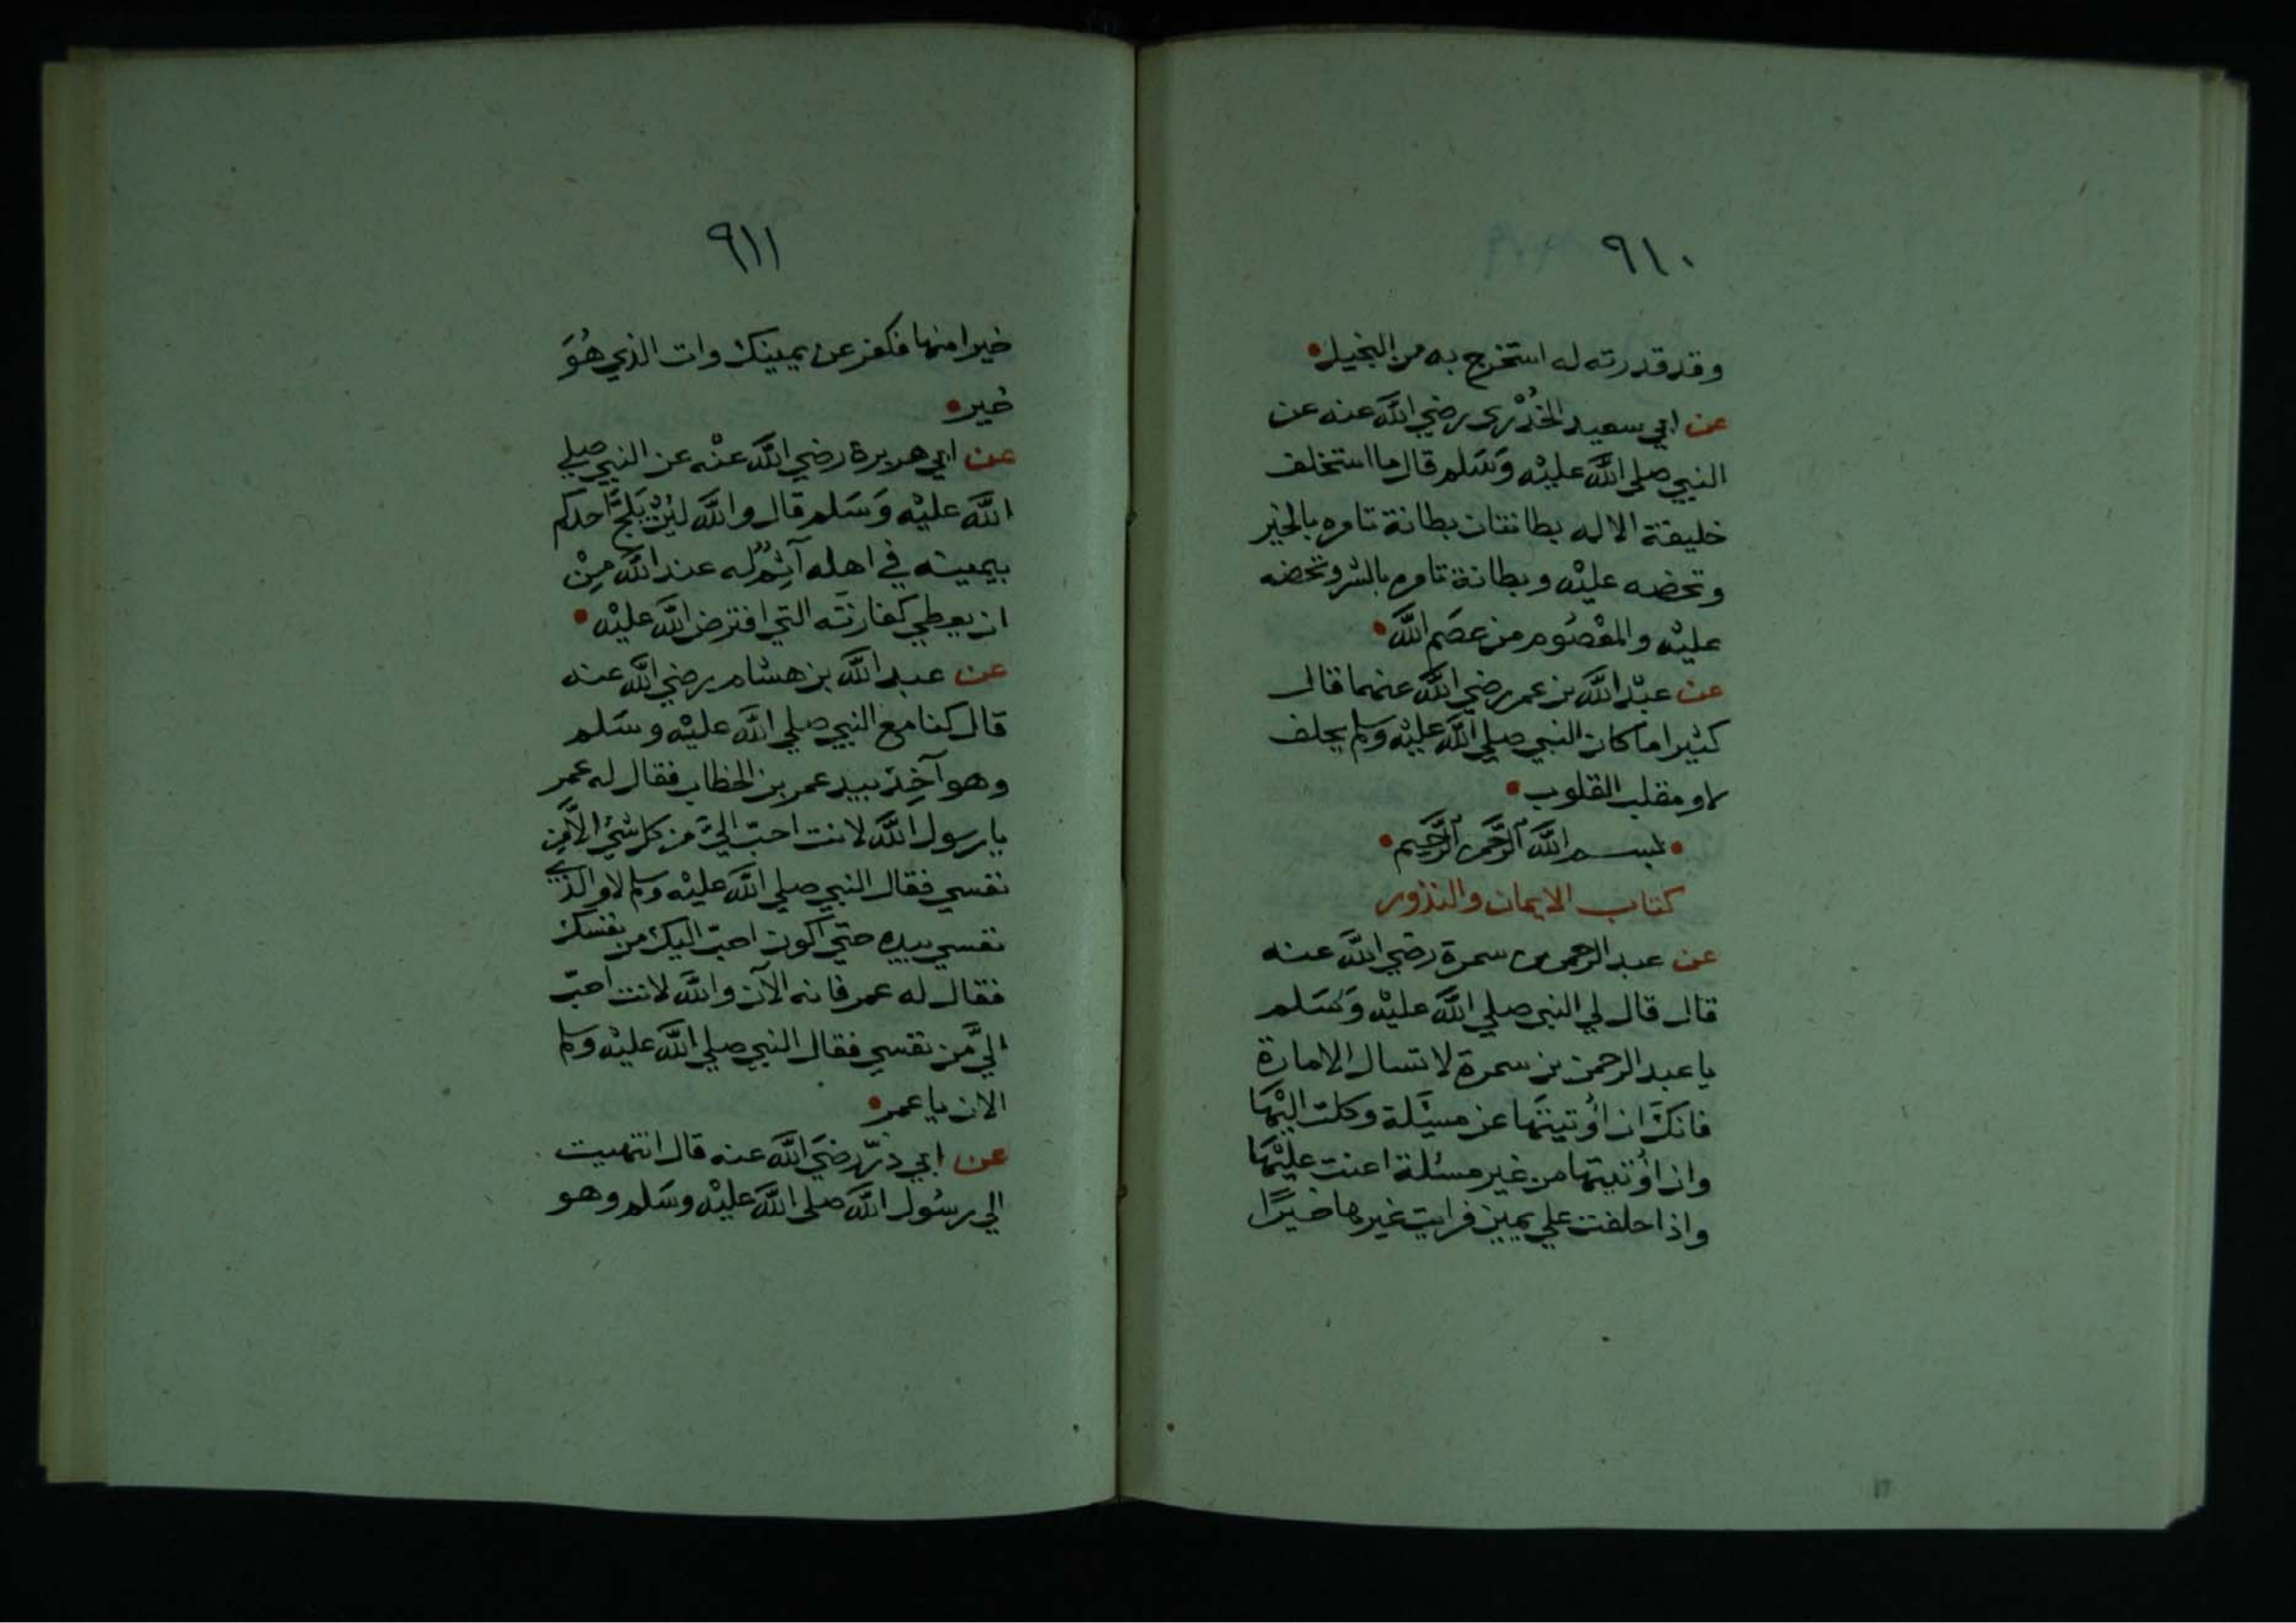 ٩١٠
وقد قدرته له استخرج به من البخيل
عن ابي سعيد الخُدْري رضي اللَّه عنه عن
النبي صلي اللَّه عليْه وَسَلم قال ما استخلف
خليفة الا له بطانتان بطانة تامره بالخير
وتحضه عليْه وبطانة تامره بالشر وتحضه
عليْه والمعْصُوم من عصَم اللَّه
عن عبْد اللَّه بن عمر رضي اللَّه عنهما قال
كثيرا ما كان النبي صلي اللَّه عليْه وسلم يحلف
لا ومقلب القلوب
بسم اللَّه الرَّحمن الرَّحِيم
كتاب الايمان والنذور
عن عبد الرحمن بن سمرة رضي اللَّه عنه
قال قال لي النبي صلي اللَّه عليْه وَسَلم
يا عبد الرحمن بن سمرة لا تسال الامارة
فانكَ ان اُوتيتَها عن مسيَلة وكلت اليْهَا
وان اُوتيتها من غير مسئلة اعنت عليْهَا
واذا حلفت علي يمين فرايت غيرها خيرًا
٩١١
خيرا منها فكفر عن يمينك وات الذي هُوَ
خير
عن ابي هريرة رضي اللَّه عنْه عن النبي صلي
اللَّه عليْه وَسَلم قال واللَّه ليْنْ يَلجَّ احدكم
بيمينه في اهله آثِمٌ له عند اللَّه مِنْ
ان يعطي كفارتَه التي افترض اللَّه عليْه
عن عبد اللَّه بن هشام رضي اللَّه عنه
قال كنا مع النبي صلي اللَّه عليْه وسَلم
وهو آخِذ بيد عمر بن الخطاب فقال له عمر
يا رسول اللَّه لانت احبّ اليَّ من كل شيْء الاَّ مِن
نفسي فقال النبي صلي اللَّه عليْه وسلم لا والذي
نفسي بيده حتي اكون احبّ اليك من نفسك
فقال له عمر فانه الآن واللَّه لانت احبّ
اليَّ مَن نفسي فقال النبي صلي اللَّه عليْه وسلم
الان يا عمر
عن ابي ذرّ رضيَ اللَّه عنه قال انتهيت
الي رسُول اللَّه صلي اللَّه عليْه وسَلم وهو